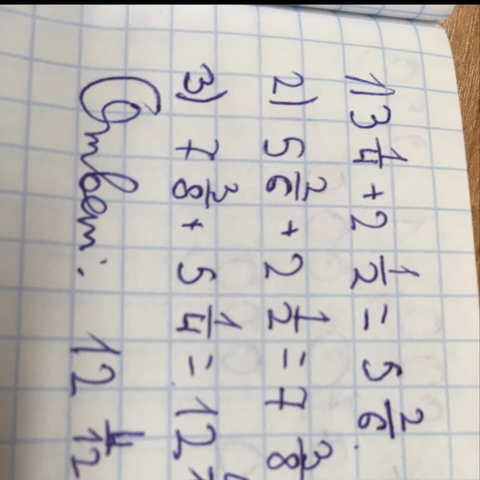 1) 3 1/4 + 2 1/2 = 5 2/6.
2) 5 2/6 + 2 1/2 = 7 3/8
3) 7 3/8 + 5 1/4 = 12
Ответ: 12 4/12